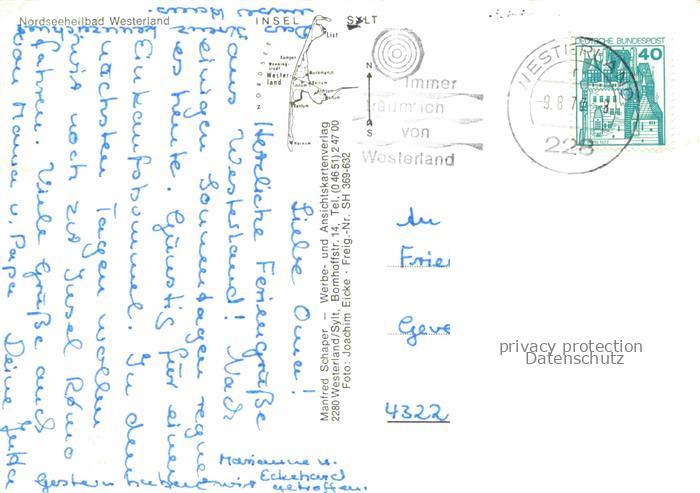 Nordseeheilbad Westerland
INSEL SYLT
Das Kreuz kennzeichnet
unser Haus.
Liebe Oma!
Herzliche Feriengrüße
aus Westerland! Nach
einigen Sonnentagen regnet
es heute. Günstig für einen
Einkaufsbummel. In den
nächsten Tagen wollen
wir noch zur Insel Römö
fahren. Viele Grüße auch
von Mama u. Papa Deine Jutta
Gestern haben wir Marianne u.
Eckehard
getroffen.
List
Kampen
Westerland
Hörnum
N
S
Manfred Schaper – Werbe- und Ansichtskartenverlag
2280 Westerland/Sylt, Bomhoffstr. 14, Tel. (0 46 51) 2 47 00
Foto: Joachim Eicke · Freig.-Nr. SH 369-632
Immer
träumlich
von
Westerland
WESTERLAND
-9.8.7
228
DEUTSCHE BUNDESPOST
40
An
Frie
Geve
4322
privacy protection
Datenschutz